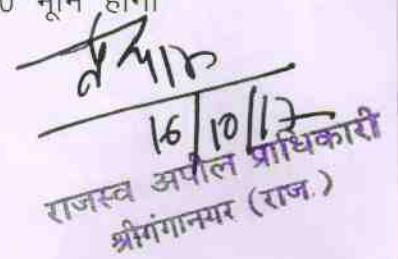 भूमि होगी
16/10/17
राजस्व अपील प्राधिकारी
श्रीगंगानगर (राज.)